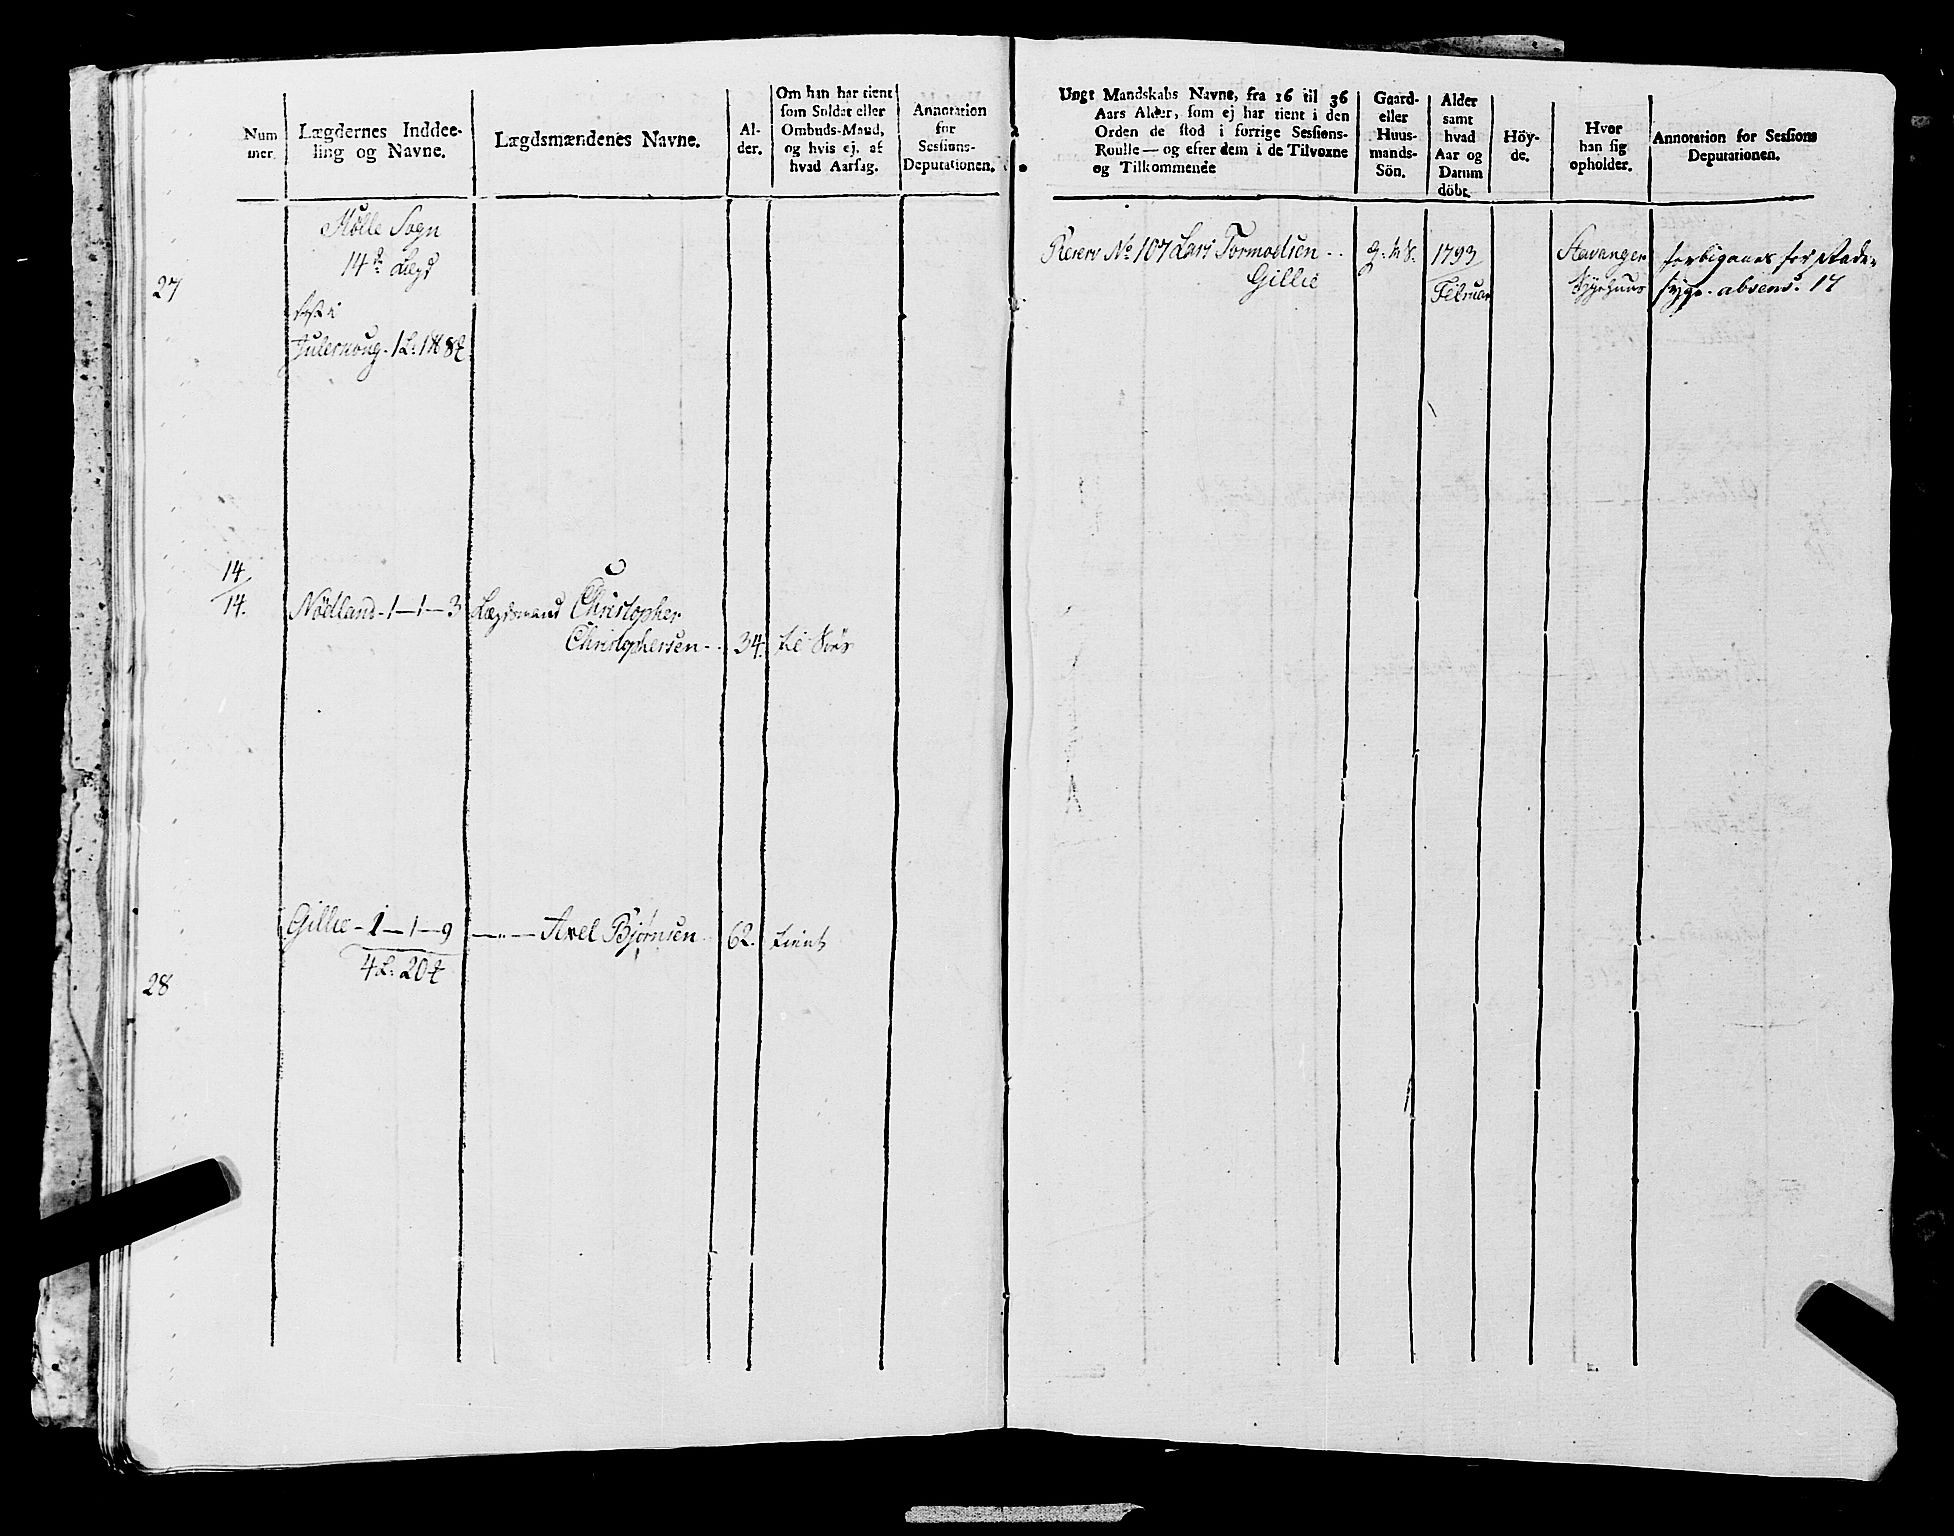 Num
mer.
Lægdernes Inddee-
ling og Navne.
Lægdsmændenes Navne.
Al-
der.
Om han har tient
som Soldat eller
Ombuds-Mand,
og hvis ej, af
hvad Aarsag.
Annotation
for
Sessions-
Deputationen.
27
Sogn
14de Lægd
1 L: 1
14
14.
Nødland - 1 — 1 — 3
Lægdsmand Christopher
Christophersen - .
34.
Gillie - 1 — 1 — 9
— " — Axel Bjørnsen
62.
tient
4 L: 20
28
Ungt Mandskabs Navne, fra 16 til 36
Aars Alder, som ej har tient i den
Orden de stod i forrige Sessions-
Roulle — og efter dem i de Tilvoxne
og Tilkommende
Gaard-
eller
Huus-
mands-
Sön.
Alder
samt
hvad
Aar og
Datum
döbt.
Höy-
de.
Hvor
han sig
opholder.
Annotation for Sessions
Deputationen.
Reserv No 107 Lars Tormodsen . .
Gillie
1793
Februar
Stavanger
Sygehuus
forbigaaet for Rade-
syge. absens. 17